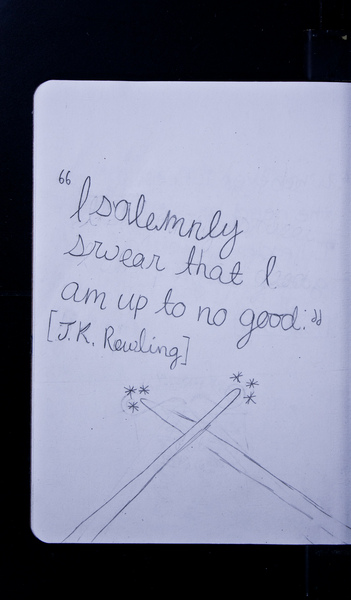 "I solemnly
swear that I
am up to no good."
[J.K. Rowling]